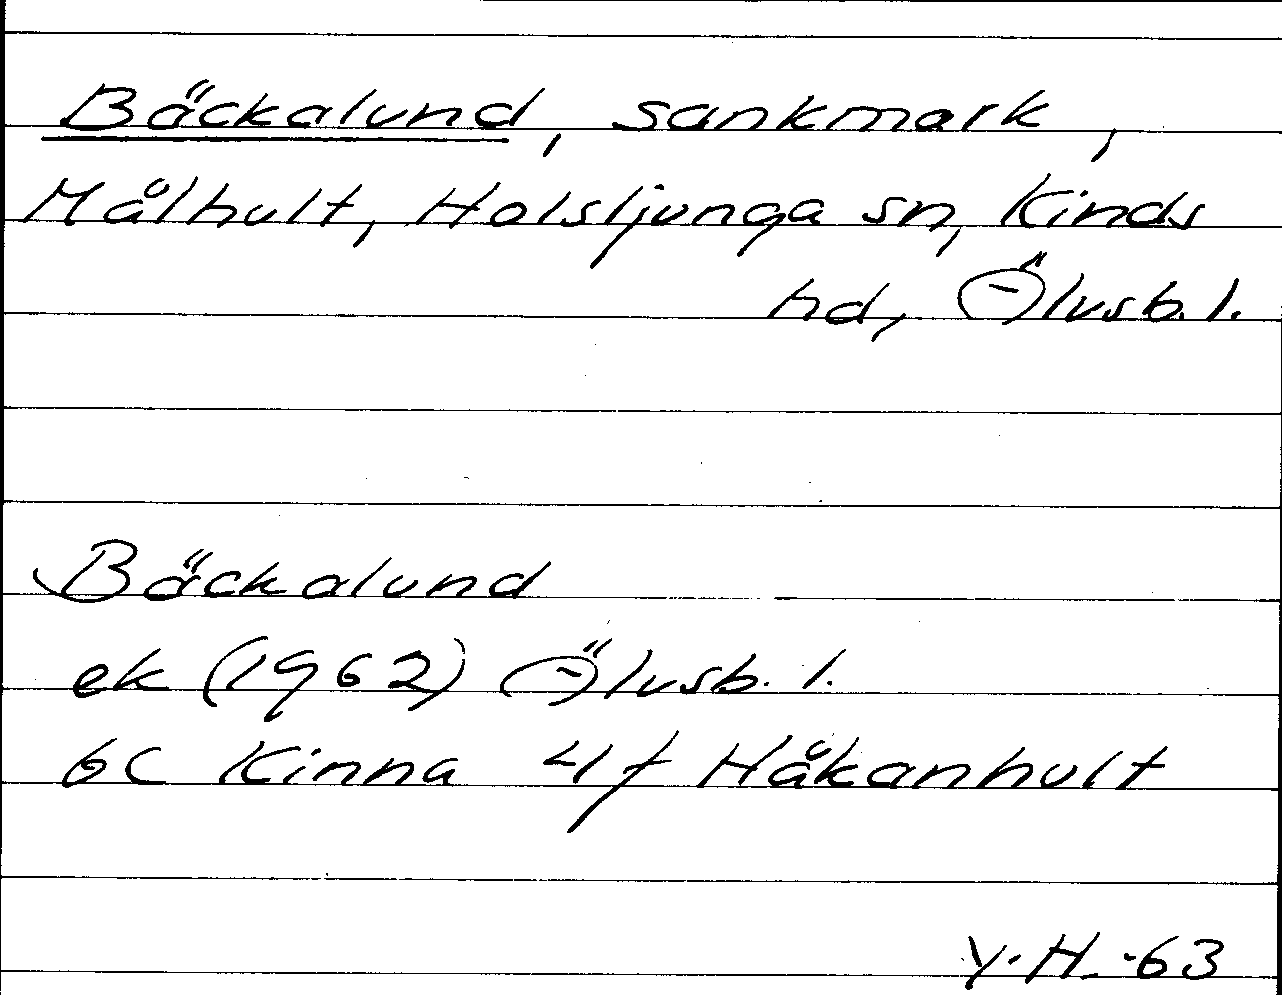 Bäckalund, sankmark,
Målhult, Holsljunga sn, Kinds
hd, Älvsb. l.
Bäckalund
ek (1962) Älvsb. l.
6C Kinna 4f Håkanhult
Y. H. -63